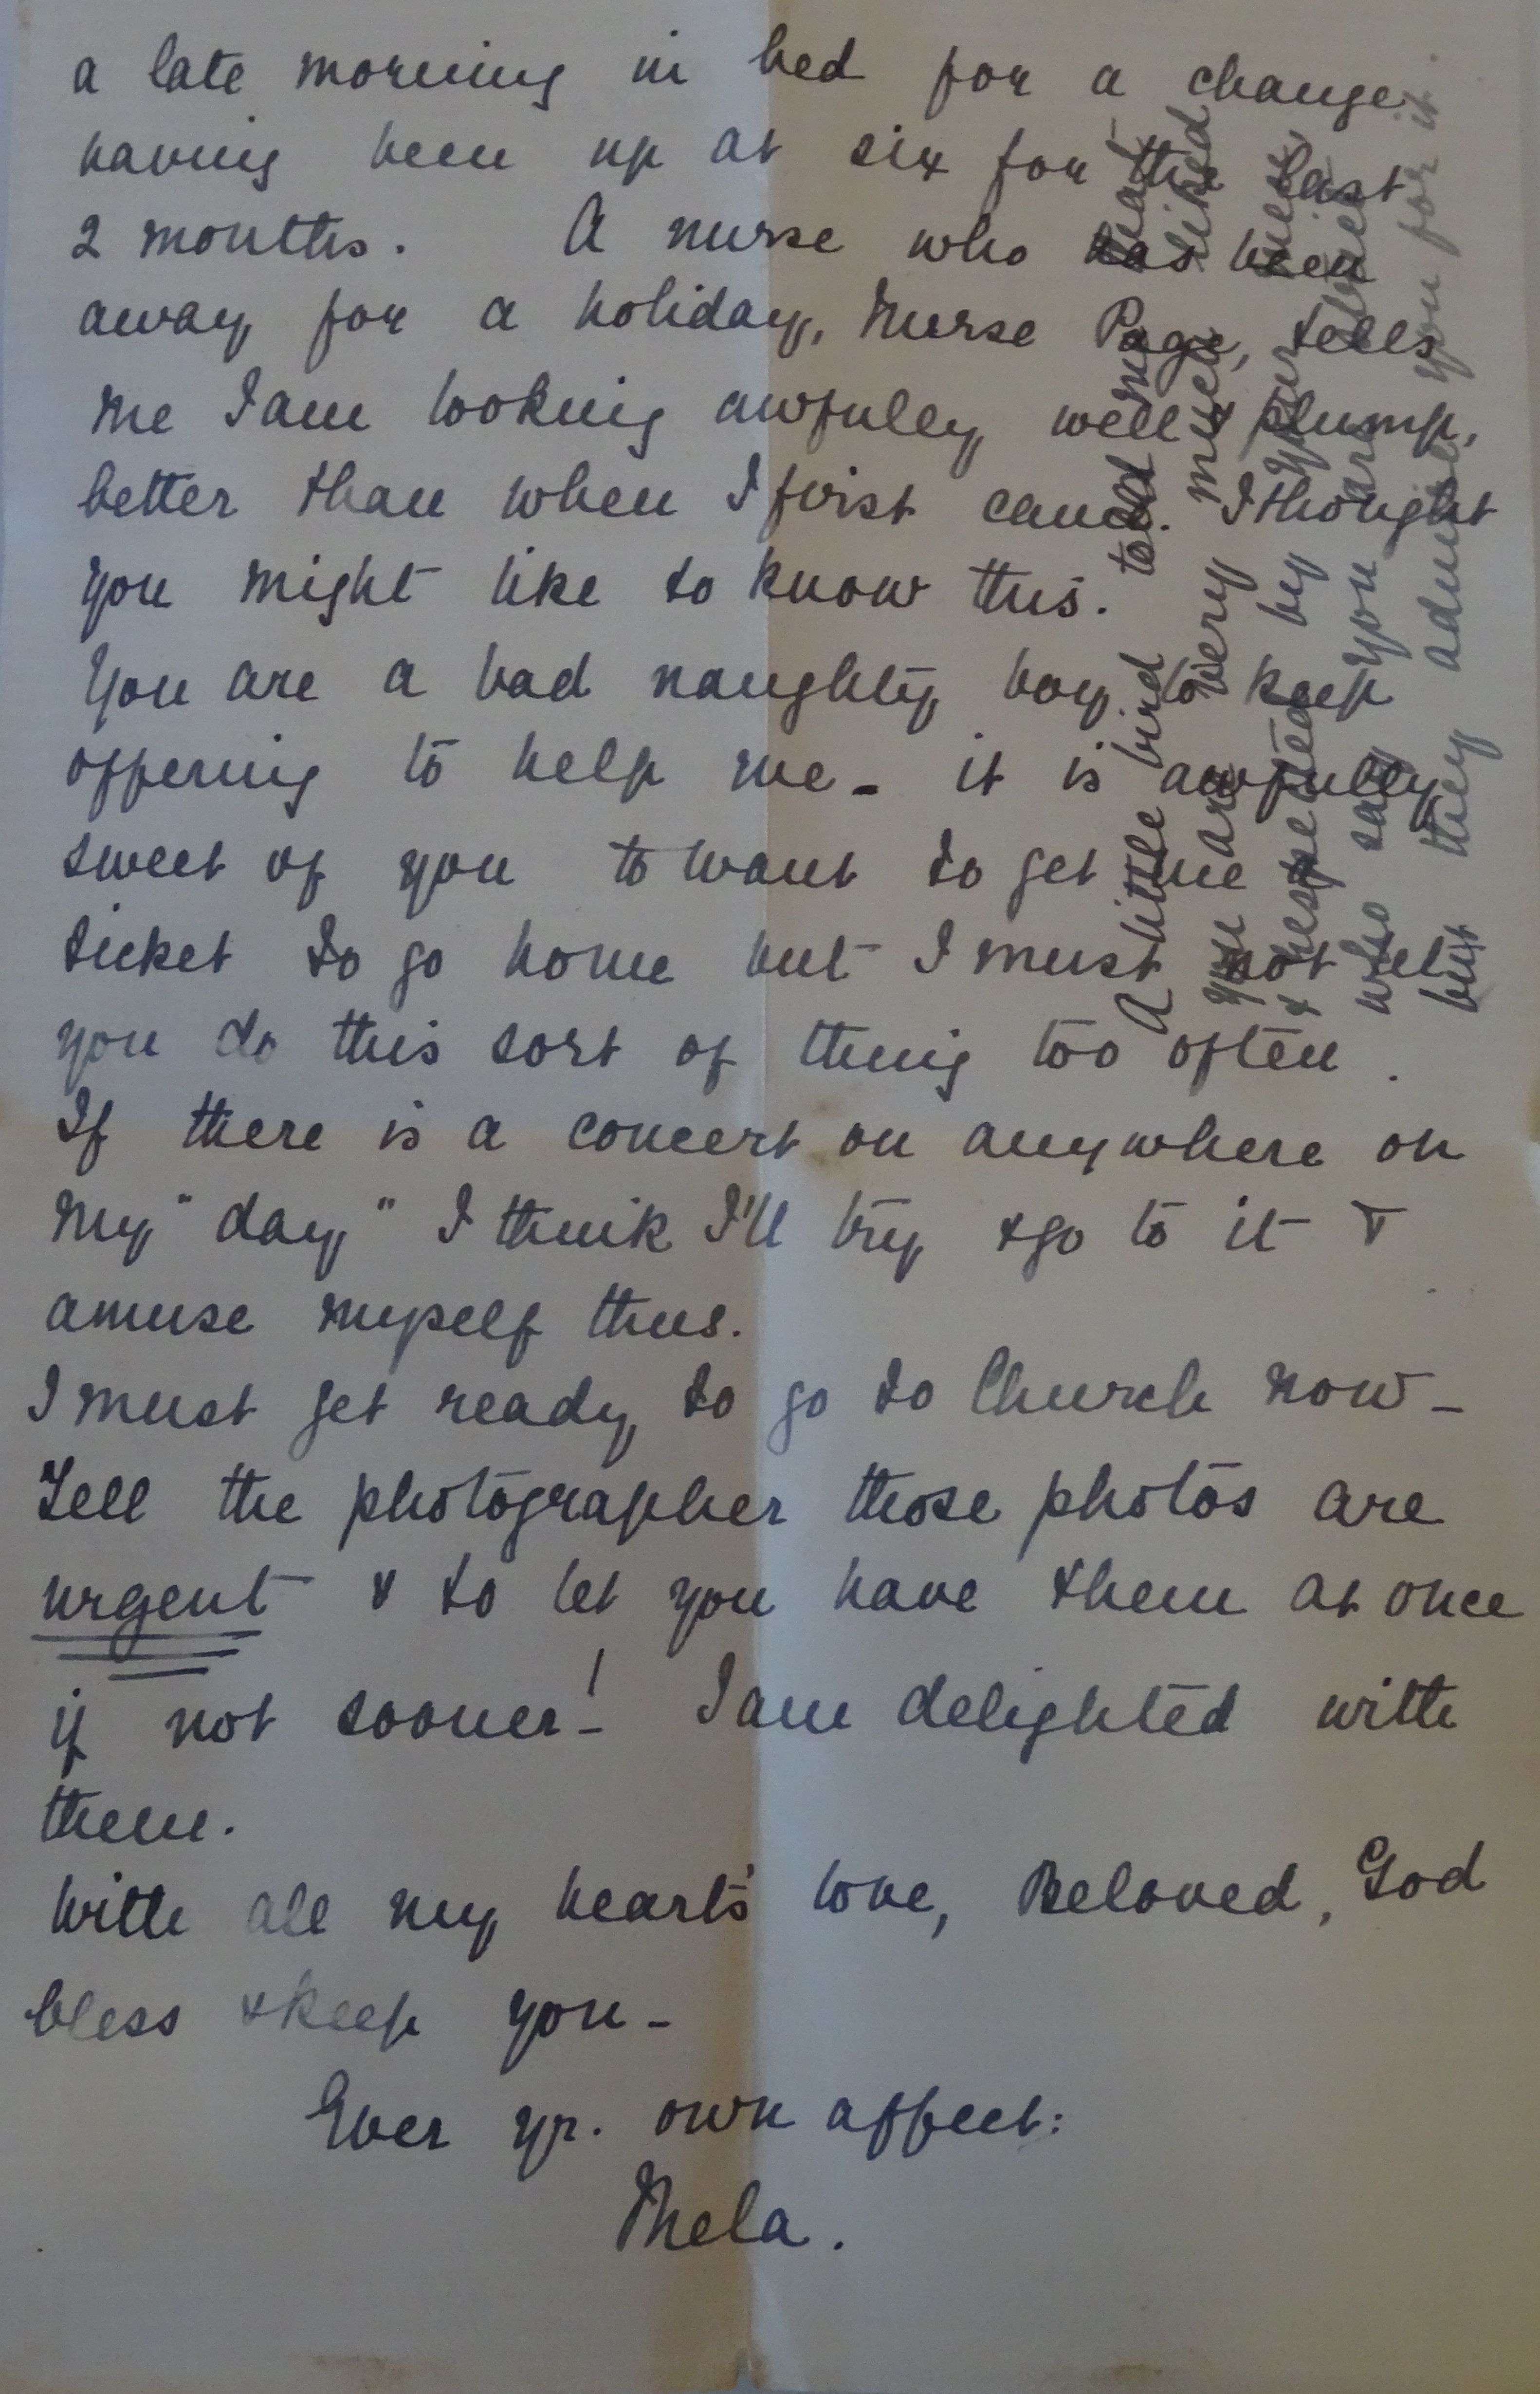 a late morning in bed for a change
having been up at six for the last
2 months. A nurse who has been
away for a holiday, Nurse Page, tells
me I am looking awfully well & plump,
better than when I first came. I thought
you might like to know this.
You are a bad naughty boy to keep
offering to help me - it is awfully
sweet of you to want to get me
ticket to go home but I must not let
you do this sort of thing too often.
If there is a concert on anywhere on
my "day" I think I'll try & go to it &
amuse myself thus.
I must get ready to go to Church now -
Tell the photographer those photos are
urgent & to let you have them at once
if not sooner! - I am delighted with
them.
With all my heart's love, Beloved, God
bless & keep you -
Ever yr. own affect:
Thela.
A little bird told me that
you are very much liked
& respected by your men
who say you are strict
but they admire you for it.